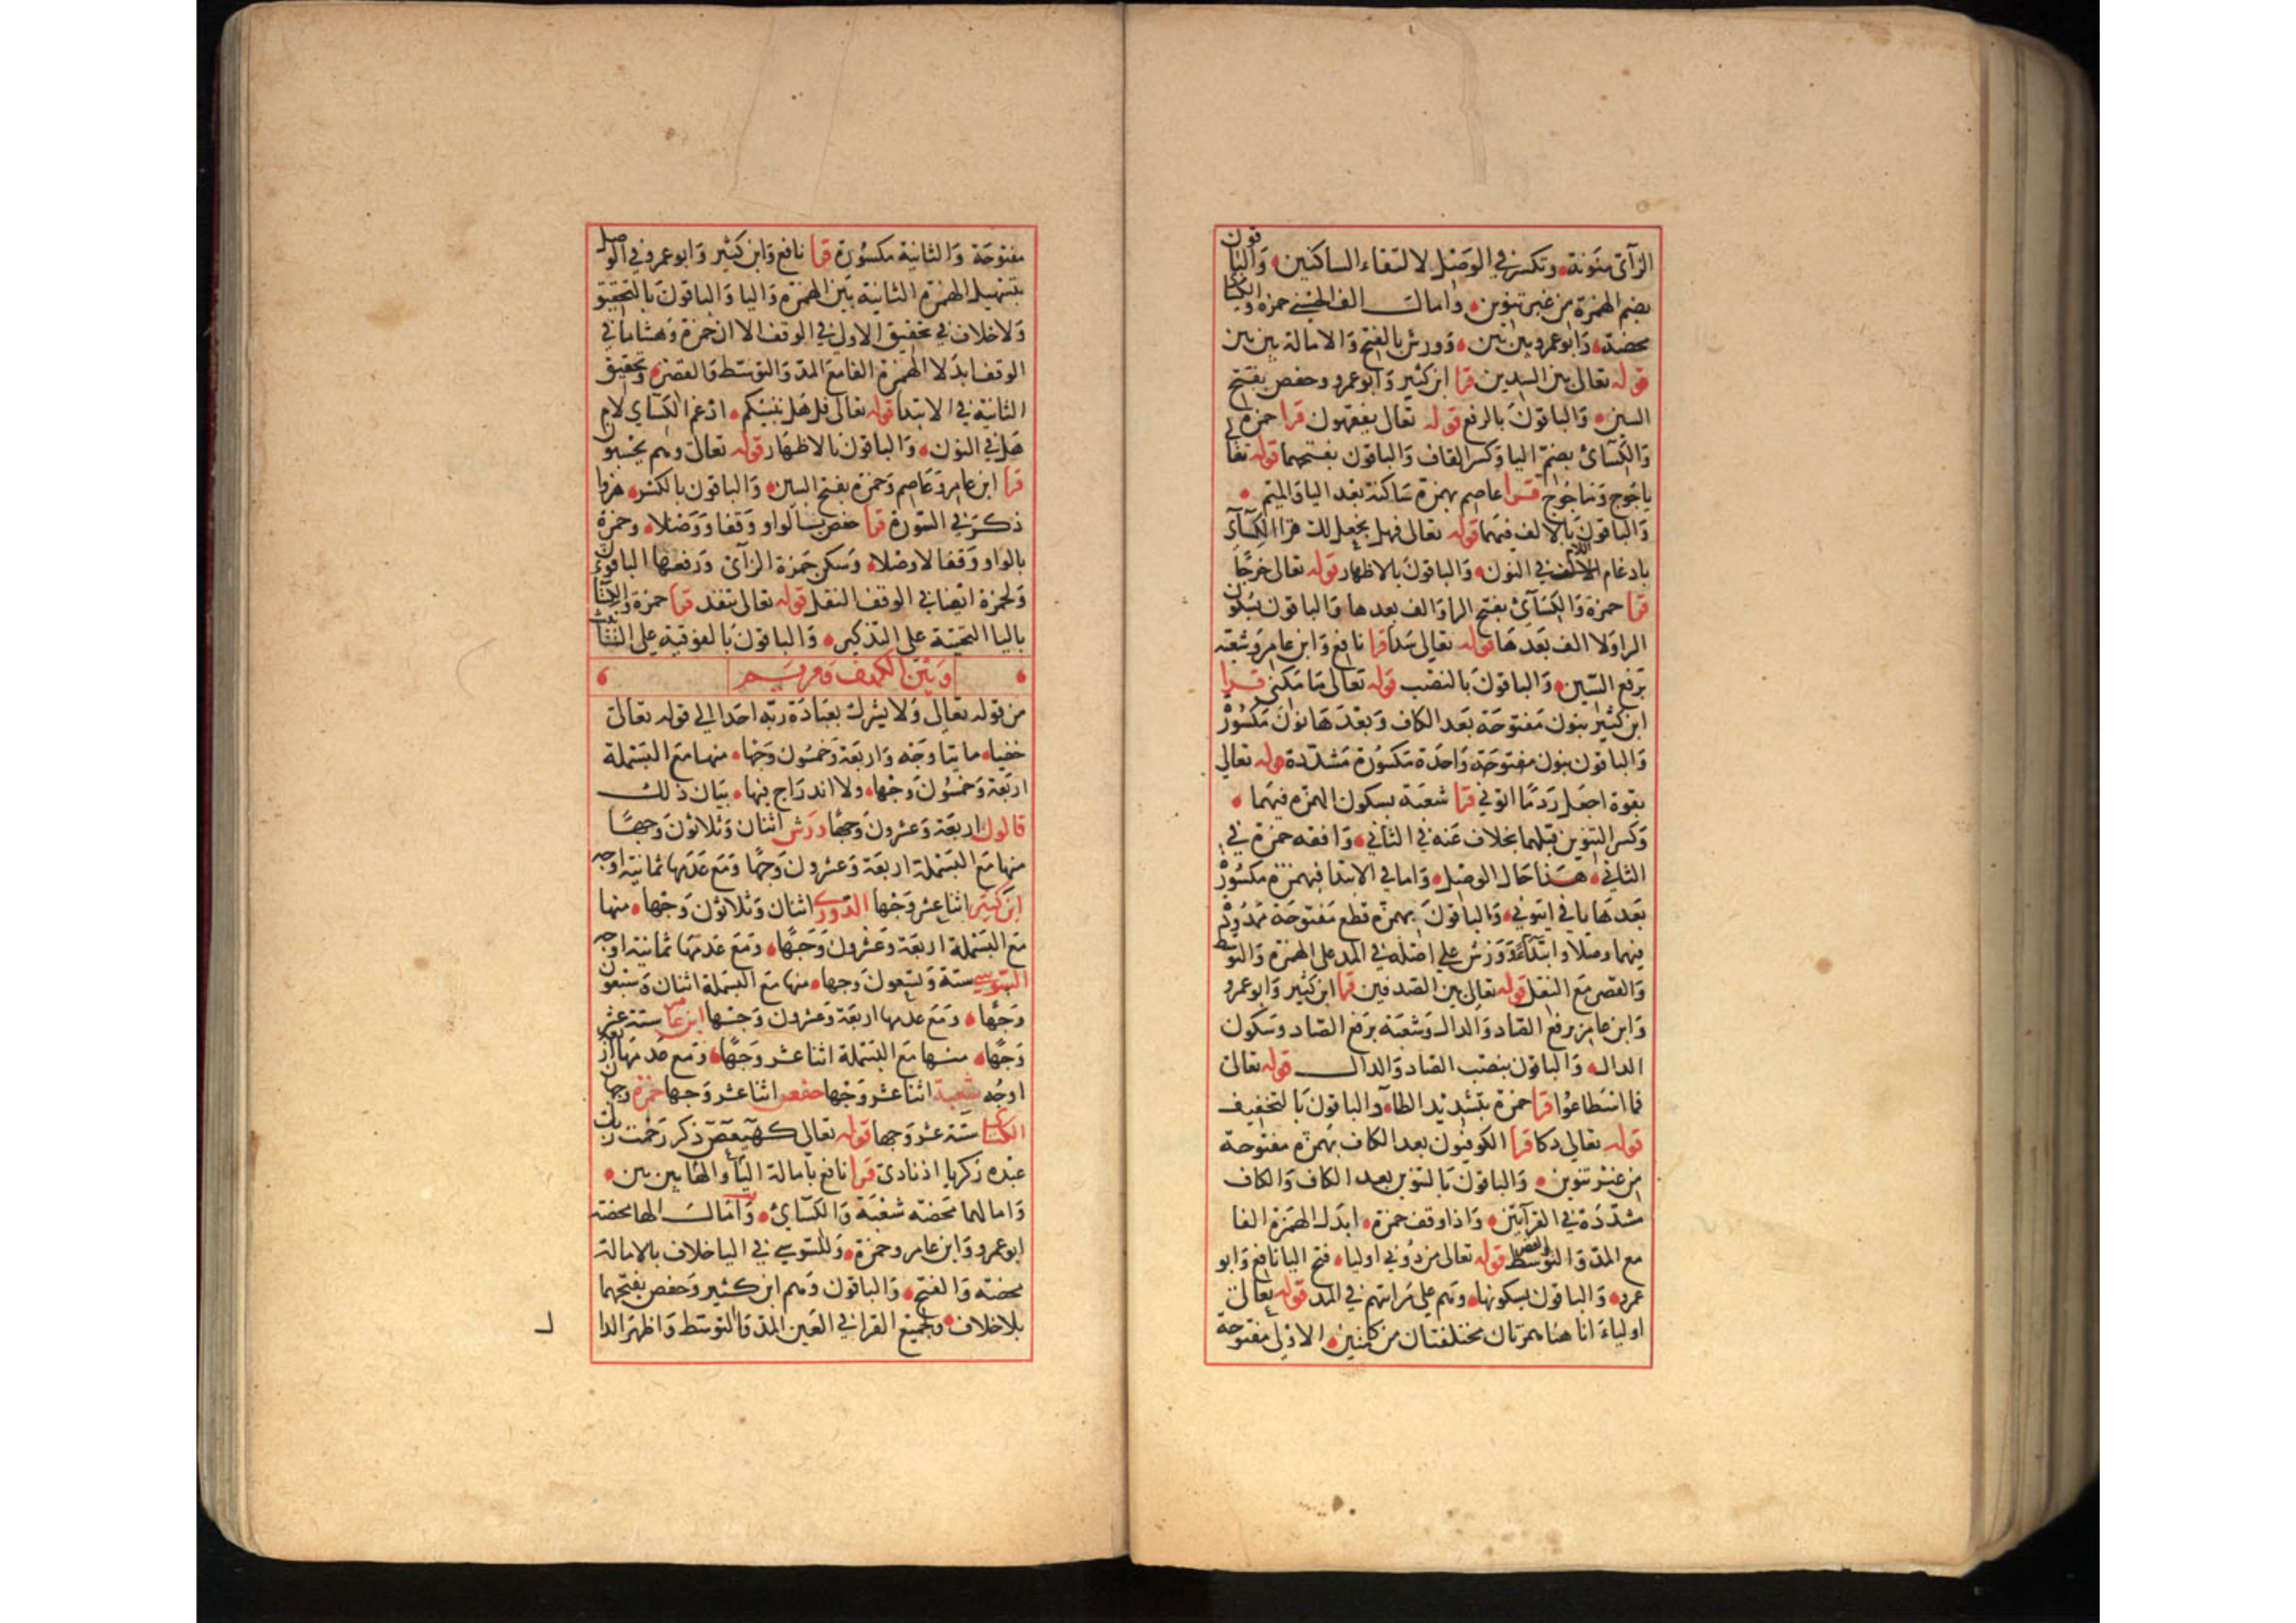 الزآى منونة وتكسر في الوصل لالتقاء الساكنين والباقون
بضم الهمزة من غير تنوين وامال الف الحسنى حمزة والكسائ
محضة وابوعمرو بين بين وورش بالفتح والامالة بين بين
قوله تعالى بين السدين قرا ابن كثير وابوعمرو وحفص بفتح
السين والباقون بالرفع قوله تعالى يفقهون قرا حمزة
والكسائ بضم اليا وكسر القاف والباقون بفتحهما قوله تعالى
ياجوج وماجوج قرا عاصم بهمزة ساكنة بعد اليا والميم
والباقون بالالف فيهما قوله تعالى فهل نجعل لك قرا الكسآئ
بادغام اللام في النون والباقون بالاظهار قوله تعالى خرجا
قرا حمزة والكسآئ بفتح الرا والف بعدها والباقون بسكون
الرا ولا الف بعدها قوله تعالى سدا قرا نافع وابن عامر وشعبة
برفع السين والباقون بالنصب قوله تعالى ما مكني قرا
ابن كثير بنون مفتوحة بعد الكاف وبعدها نون مكسورة
والباقون بنون واحدة مكسورة مشددة قوله تعالى
بقوة اجعل ردما اتوني قرا شعبة بسكون الهمزة فيهما
وكسر التنوين قبلهما بخلاف عنه في الثاني ووافقه حمزة في
الثاني هذا حال الوصل واما في الابتدا فبهمزة مكسورة
بعدها يا في ايتوني والباقون بهمزة قطع مفتوحة ممدودة
فيهما وصلا وابتداءً وورش على اصله في المد على الهمزة والتوسط
والقصر مع النقل قوله تعالى بين الصدفين قرا ابن كثير وابوعمرو
وابن عامر برفع الصاد والدال وشعبة برفع الصاد وسكون
الدال والباقون بنصب الصاد والدال قوله تعالى
فما اسطاعوا قرا حمزة بتشديد الطاء والباقون بالتخفيف
قوله تعالى دكا قرا الكوفيون بعد الكاف بهمزة مفتوحة
من غير تنوين والباقون بالتنوين بعد الكاف والكاف
مشددة في القرآتين واذا وقف حمزة ابدل الهمزة الفا
مع المد والتوسط والقصر قوله تعالى من دوني اوليا فتح اليا نافع وابو
عمرو والباقون بسكونها وهم على مراتبهم في المد قوله تعالى
اولياء انا هنا همزتان مختلفتان من كلمتين الاولى مفتوحة
مفتوحة والثانية مكسورة قرا نافع وابن كثير وابوعمرو في الوصل
بتسهيل الهمزة الثانية بين الهمزة واليا والباقون بالتحقيق
ولاخلاف في تحقيق الاولى في الوقف الا ان حمزة وهشاما في
الوقف ابدلا الهمزة الفا مع المد والتوسط والقصر وتحقيق
الثانية في الابتدا قوله تعالى قل هل ننبئكم ادغم الكسآي لام
هل في النون والباقون بالاظهار قوله تعالى وهم يحسبون
قرا ابن عامر وعاصم وحمزة بفتح السين والباقون بالكسر هزوا
ذكر في السورة قرا حفص بالواو وقفا ووصلا وحمزة
بالواو وقفا لا وصلا وسكن حمزة الزآى ورفعها الباقون
ولحمزة ايضا في الوقف النقل قوله تعالى تنفد قرا حمزة والكسآئ
باليا التحتية على التذكير والباقون بالفوقية على التانيث
وبين الكهف ومريم
من قوله تعالى ولا يشرك بعبادة ربه احدا الى قوله تعالى
خفيا مايتا وجه واربعة وخمسون وجها منها مع البسملة
اربعة وخمسون وجها ولا اندراج فيها بيان ذلك
قالون اربعة وعشرون وجها ورش اثنان وثلاثون وجها
منها مع البسملة اربعة وعشرون وجها ومع عدمها ثمانية اوجه
ابن كثير اثنا عشر وجها الدوري اثنان وثلاثون وجها منها
مع البسملة اربعة وعشرون وجها ومع عدمها ثمانية اوجه
السوسي ستة وتسعون وجها منها مع البسملة اثنان وسبعون
وجها ومع عدمها اربعة وعشرون وجها ابن عامر ستة عشر
وجها منها مع البسملة اثنا عشر وجها ومع عدمها اربعة
اوجه شعبة اثنا عشر وجها حفص اثنا عشر وجها حمزة وجهان
الكسائ ستة عشر وجها قوله تعالى كهيعص ذكر رحمت ربك
عبده زكريا اذ نادى قرا نافع بامالة اليا والها بين بين
وامالهما محضة شعبة والكسآئ وامال الها محضة
ابوعمرو وابن عامر وحمزة وللسوسي في اليا خلاف بالامالة
محضة والفتح والباقون وهم ابن كثير وحفص بفتحهما
بلاخلاف ولجميع القرا في العين المد والتوسط واظهر الدا
ل